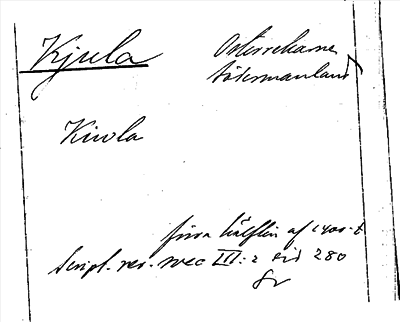 Kjula
Österrekarne
Södermanland
Kiwla
förra hälften af 1400-t
Script. rer. svec III: 2 sid 280